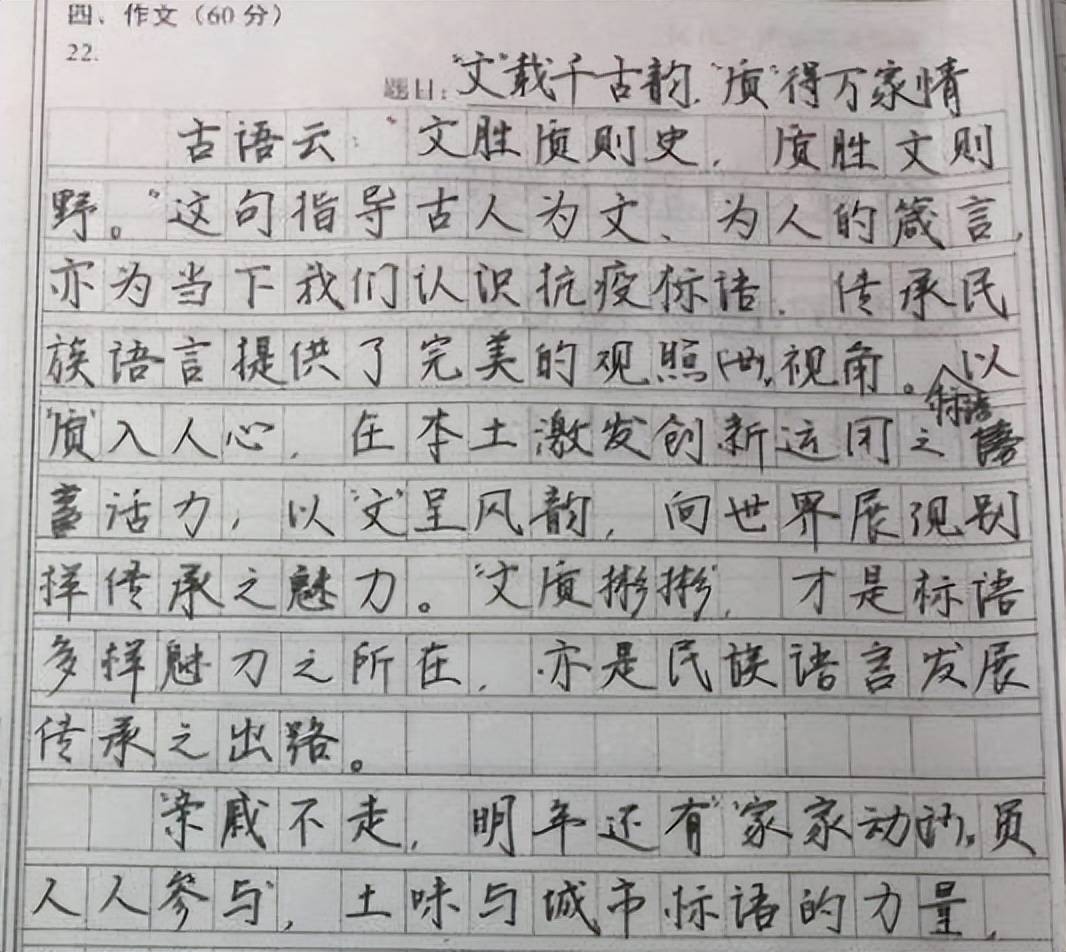 四、作文（60分）
22.
题目：“文”载千古韵，“质”得万家情
古语云：“文胜质则史，质胜文则
野。”这句指导古人为文、为人的箴言，
亦为当下我们认识抗疫标语、传承民
族语言提供了完美的观照视角。以
“质”入人心，在本土激发创新运用之标语
活力，以“文”呈风韵，向世界展现别
样传承之魅力。“文质彬彬”，才是标语
多样魅力之所在，亦是民族语言发展
传承之出路。
“亲戚不走，明年还有”“家家动员
人人参与”，土味与城市标语的力量，